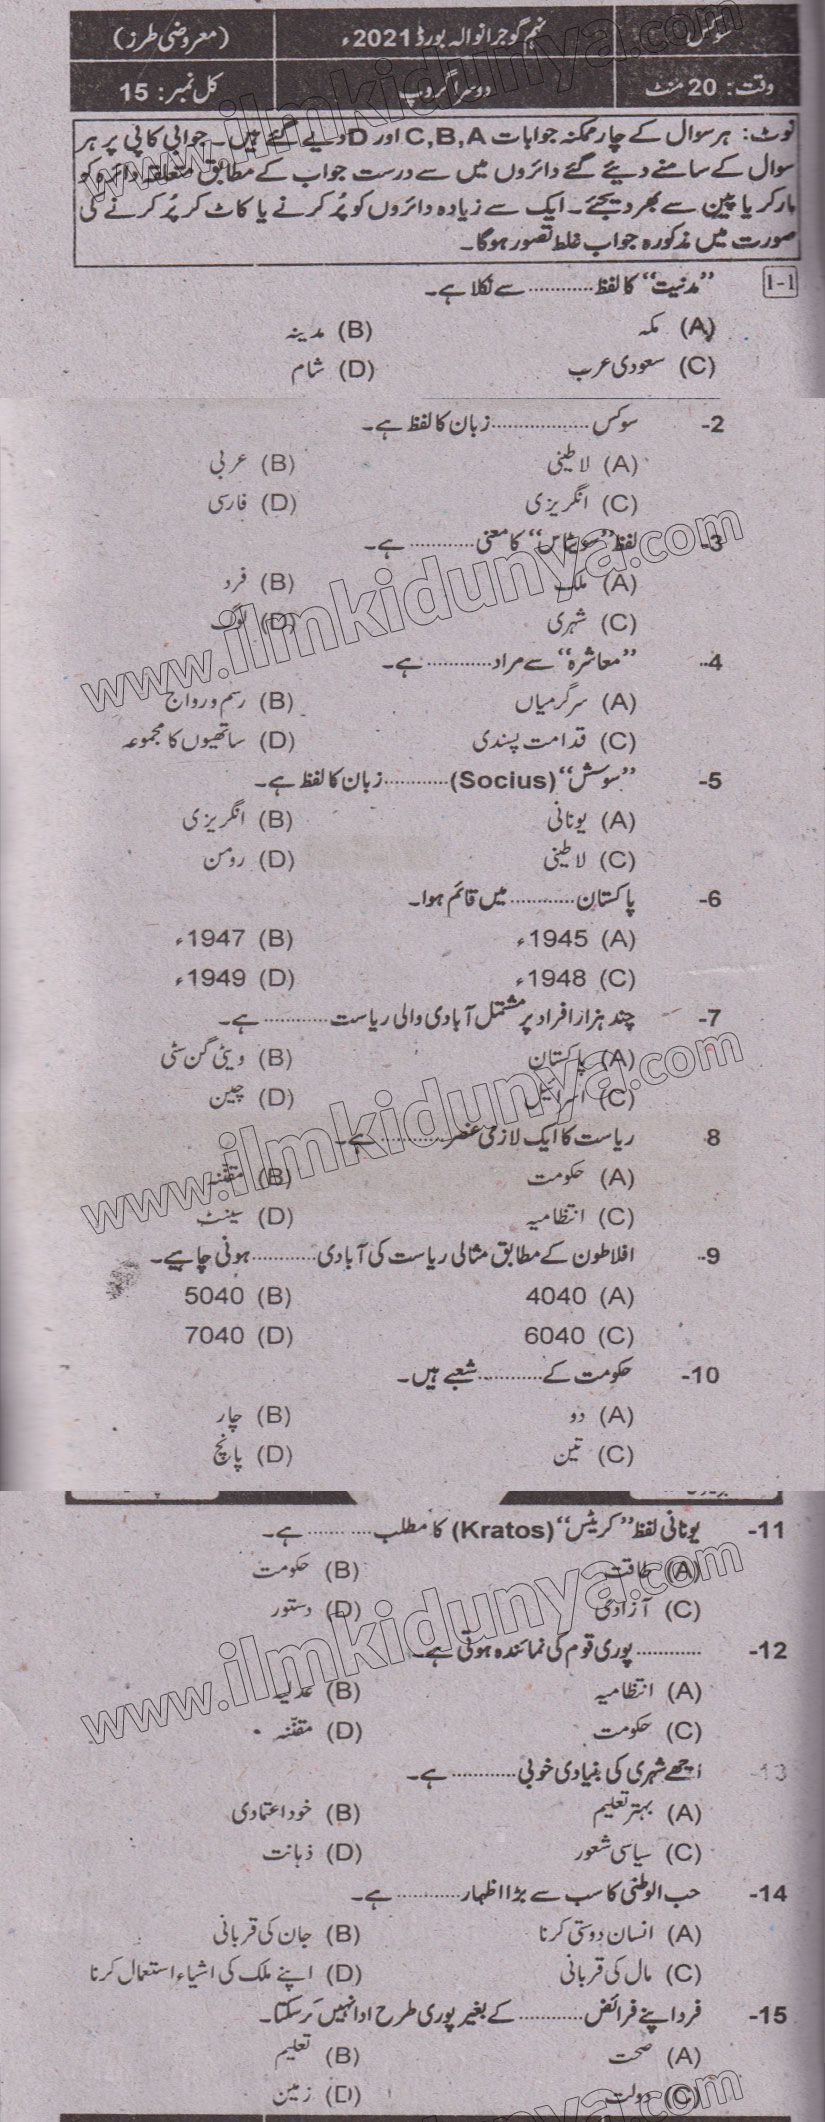 سوکس
نہم گوجرانوالہ بورڈ 2021ء
(معروضی طرز)
وقت: 20 منٹ
دوسرا گروپ
کل نمبر: 15
نوٹ: ہر سوال کے چار ممکنہ جوابات C,B,A اور D دیے گئے ہیں۔ جوابی کاپی پر ہر
سوال کے سامنے دیئے گئے دائروں میں سے درست جواب کے مطابق متعلقہ دائرہ کو
مارکر یا پین سے بھر دیجئے۔ ایک سے زیادہ دائروں کو پُر کرنے یا کاٹ کر پُر کرنے کی
صورت میں مذکورہ جواب غلط تصور ہوگا۔
1-1 ”مدنیت“ کا لفظ ............ سے نکلا ہے۔
(A) مکہ (B) مدینہ
(C) سعودی عرب (D) شام
2- سوکس .................. زبان کا لفظ ہے۔
(A) لاطینی (B) عربی
(C) انگریزی (D) فارسی
3- لفظ ”سویٹاس“ کا معنی ............ ہے۔
(A) ملک (B) فرد
(C) شہری (D) لوگ
4- ”معاشرہ“ سے مراد ............ ہے۔
(A) سرگرمیاں (B) رسم و رواج
(C) قدامت پسندی (D) ساتھیوں کا مجموعہ
5- ”سوشس“ (Socius) ............ زبان کا لفظ ہے۔
(A) یونانی (B) انگریزی
(C) لاطینی (D) رومن
6- پاکستان ............ میں قائم ہوا۔
(A) 1945ء (B) 1947ء
(C) 1948ء (D) 1949ء
7- چند ہزار افراد پر مشتمل آبادی والی ریاست ............ ہے۔
(A) پاکستان (B) ویٹی گن سٹی
(C) اسرائیل (D) چین
8 ریاست کا ایک لازمی عنصر ............ ہے۔
(A) حکومت (B) مقننہ
(C) انتظامیہ (D) سینٹ
9- افلاطون کے مطابق مثالی ریاست کی آبادی ............ ہونی چاہیے۔
(A) 4040 (B) 5040
(C) 6040 (D) 7040
10- حکومت کے ............ شعبے ہیں۔
(A) دو (B) چار
(C) تین (D) پانچ
11- یونانی لفظ ”کریٹس“ (Kratos) کا مطلب ............ ہے۔
(A) طاقت (B) حکومت
(C) آزادی (D) دستور
12- ............ پوری قوم کی نمائندہ ہوتی ہے۔
(A) انتظامیہ (B) عدلیہ
(C) حکومت (D) مقننہ
13- اچھے شہری کی بنیادی خوبی ............ ہے۔
(A) بہتر تعلیم (B) خود اعتمادی
(C) سیاسی شعور (D) ذہانت
14- حب الوطنی کا سب سے بڑا اظہار ............ ہے۔
(A) انسان دوستی کرنا (B) جان کی قربانی
(C) مال کی قربانی (D) اپنے ملک کی اشیاء استعمال کرنا
15- فرد اپنے فرائض ............ کے بغیر پوری طرح ادا نہیں کر سکتا۔
(A) صحت (B) تعلیم
(C) دولت (D) زمین
www.ilmkidunya.com
www.ilmkidunya.com
www.ilmkidunya.com
www.ilmkidunya.com